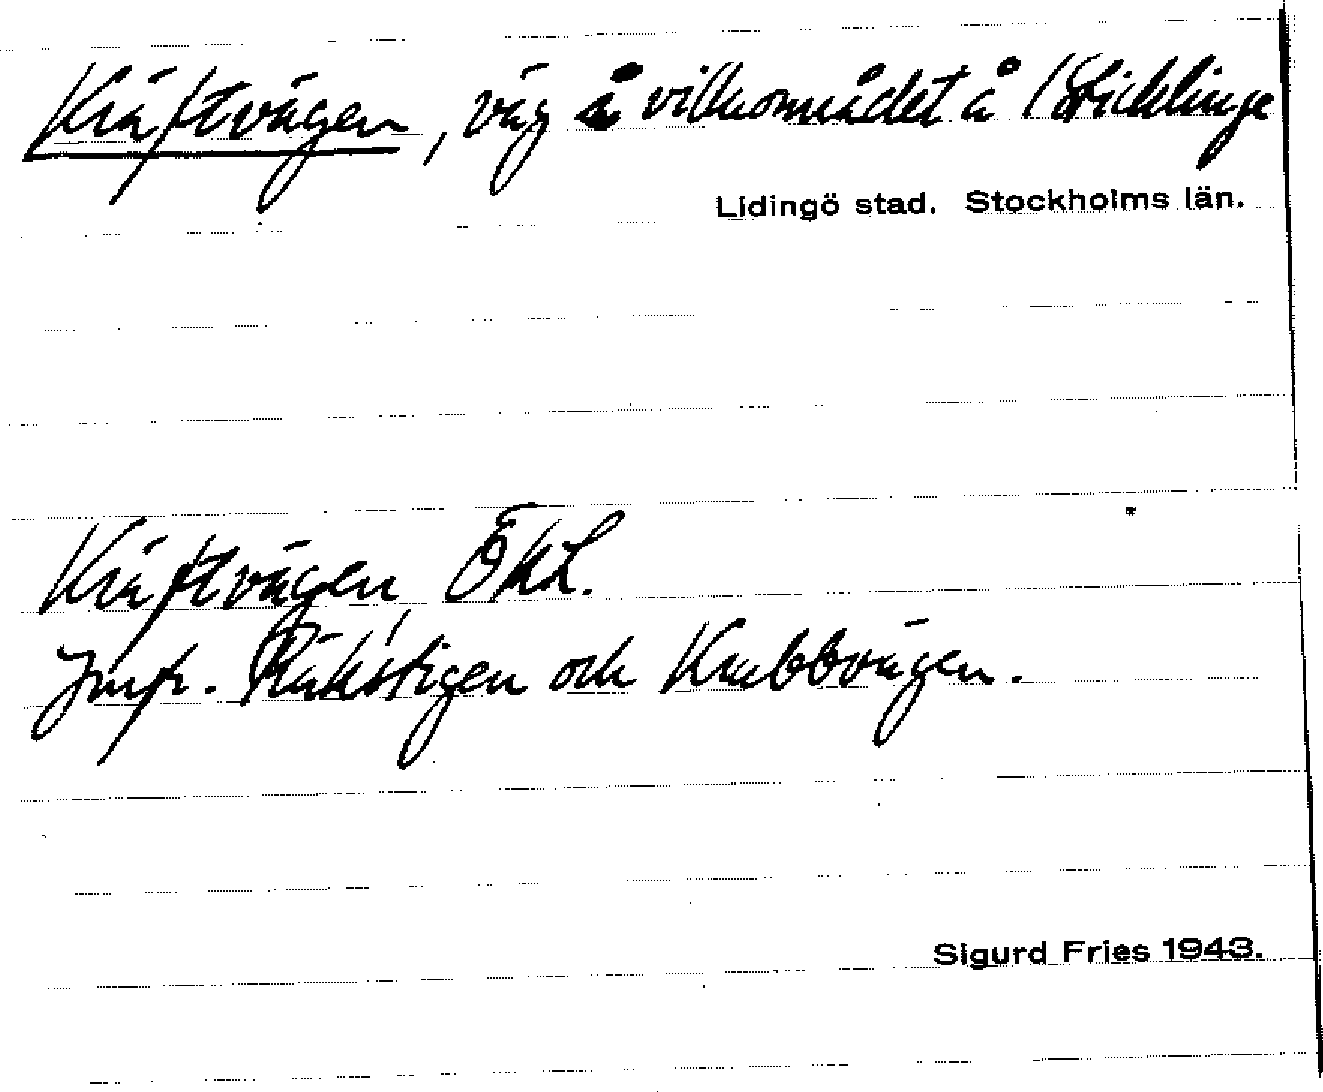 Kräftvägen, väg å villaområdet å (Sticklinge
Lidingö stad. Stockholms län.
Kräftvägen ÖKL.
Jmfr. Räkstigen och Krabbvägen.
Sigurd Fries 1943.